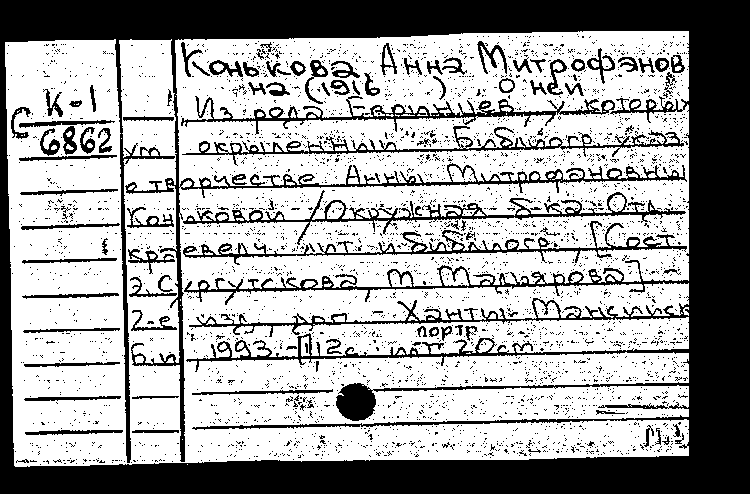 Конькова, Анна Митрофанов
на (1916 ) О ней
К-1
С 6862
"Из рода Евринцев, у которых
ум окрыленный" - Библиогр. указ.
о творчестве Анны Митрофановны
Коньковой / Окружная б-ка. Отд.
краеведч. лит. и библиогр.; [Сост.
Э. Сургутскова, М. Мадьярова] -
2-е изд., доп. - Ханты-Мансийск
Б.и., 1993. - [1], 12с.: портр.; 20см.